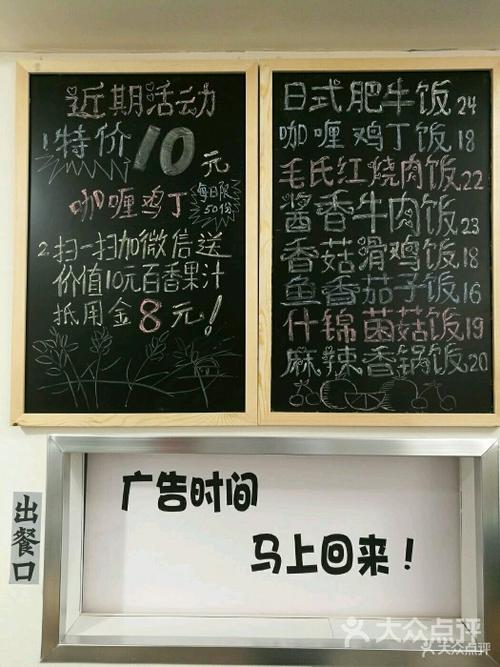 近期活动
1.特价10元
咖喱鸡丁
每日限
50份
2.扫一扫加微信送
价值10元百香果汁
抵用金8元!
日式肥牛饭24
咖喱鸡丁饭18
毛氏红烧肉饭22
酱香牛肉饭23
香菇滑鸡饭18
鱼香茄子饭16
什锦菌菇饭19
麻辣香锅饭20
广告时间
马上回来!
出餐口
大众点评
大众点评